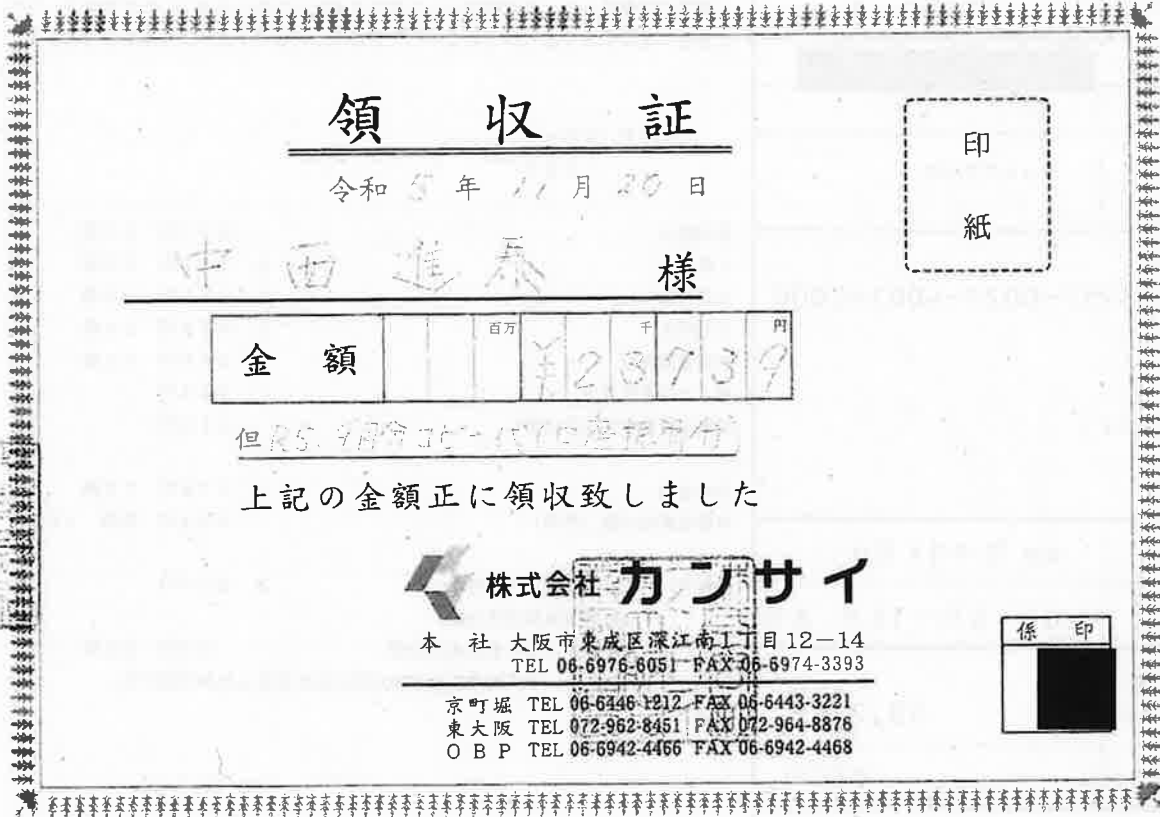 領収証
令和5年11月20日
中西進泰 様
印紙
金額 百万 千 円
¥23939
但R5.9月分コピー代
上記の金額正に領収致しました
株式会社 カンサイ
本社 大阪市東成区深江南1丁目12-14
TEL 06-6976-6051 FAX 06-6974-3393
京町堀 TEL 06-6446-1212 FAX 06-6443-3221
東大阪 TEL 072-962-8451 FAX 072-964-8876
OBP TEL 06-6942-4466 FAX 06-6942-4468
係印